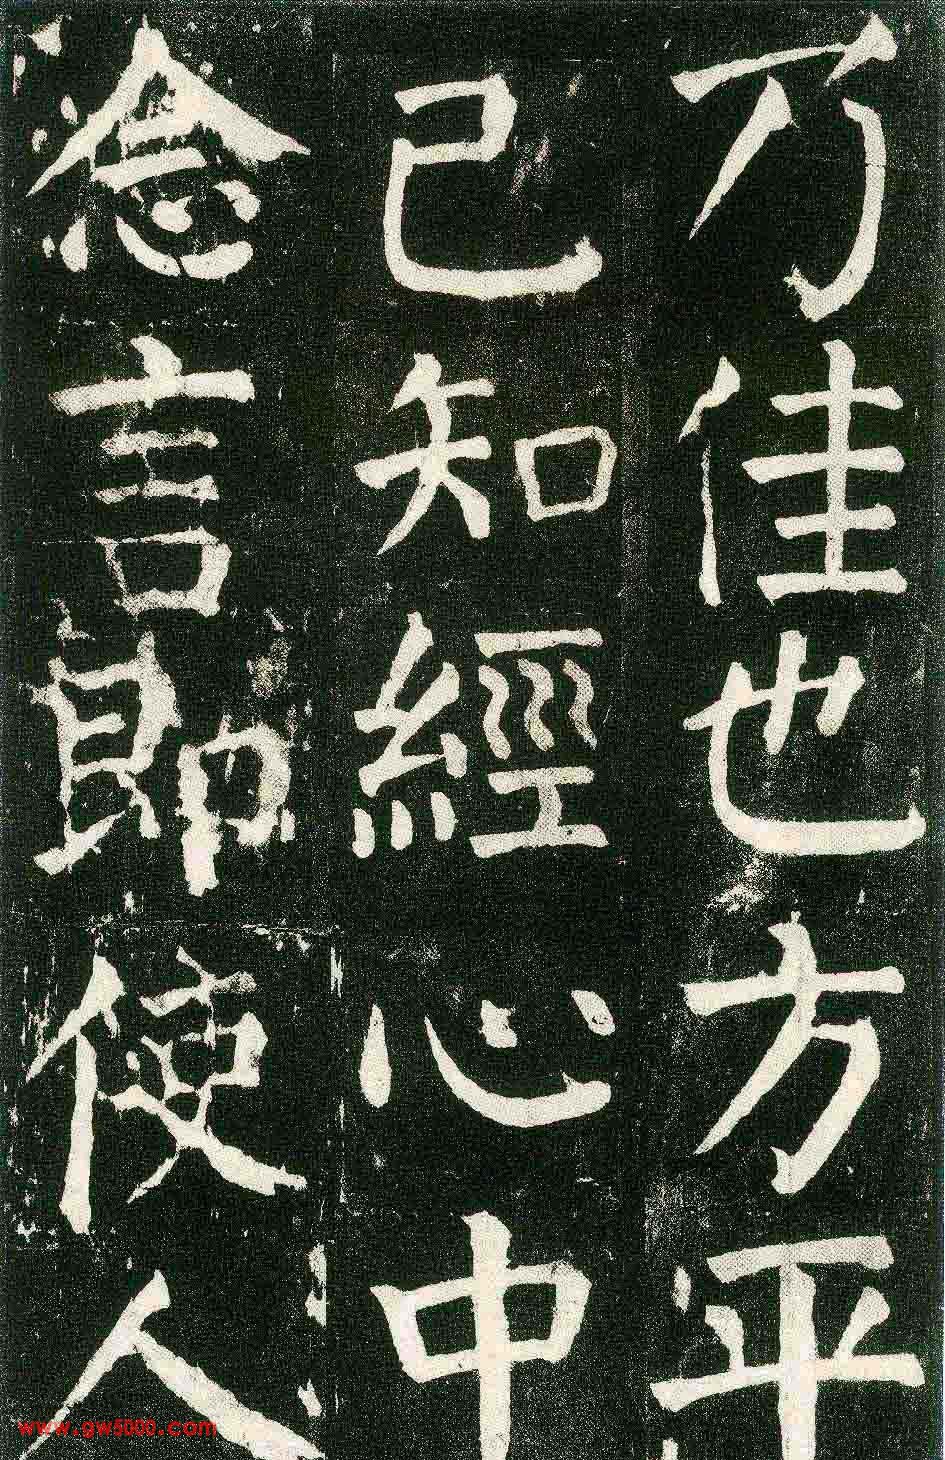 乃佳也方平
已知經心中
念言即使人
www.gw5000.com